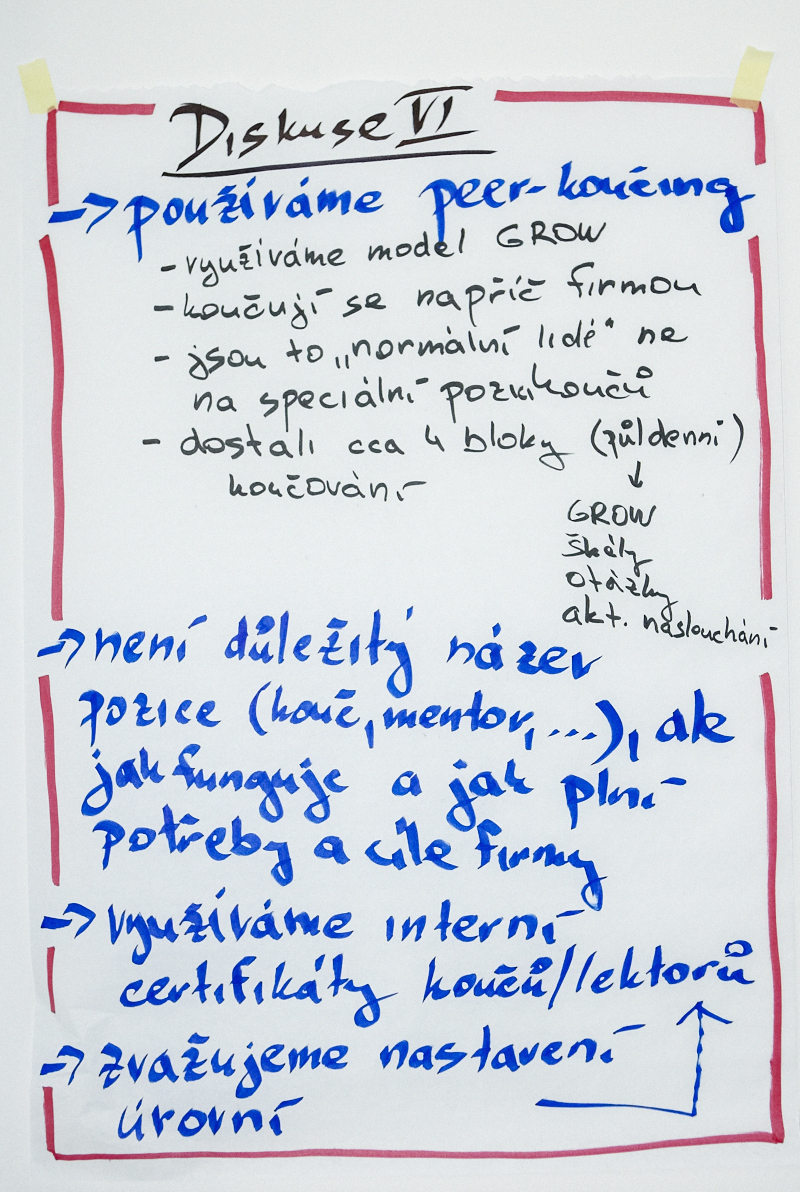 Diskuse VI
-> používáme peer-koučing
- využíváme model GROW
- koučují se napříč firmou
- jsou to „normální lidé" ne
na speciální pozici koučů
- dostali cca 4 bloky (půldenní)
koučování
↓
GROW
škály
otázky
akt. naslouchání
-> není důležitý název
pozice (kouč, mentor, ...), ale
jak funguje a jak plní
potřeby a cíle firmy
-> využíváme interní
certifikáty koučů/lektorů
-> zvažujeme nastavení
úrovní